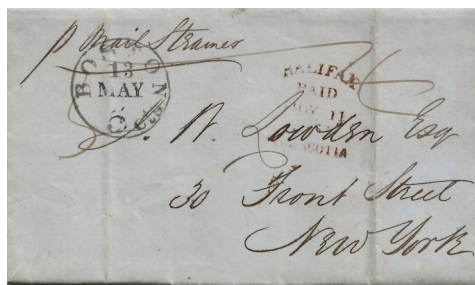 p Mail Steamer
BOSTON
13
MAY
HALIFAX
PAID
MY 11
SCOTIA
W. Lowden Esq
30 Front Street
New York